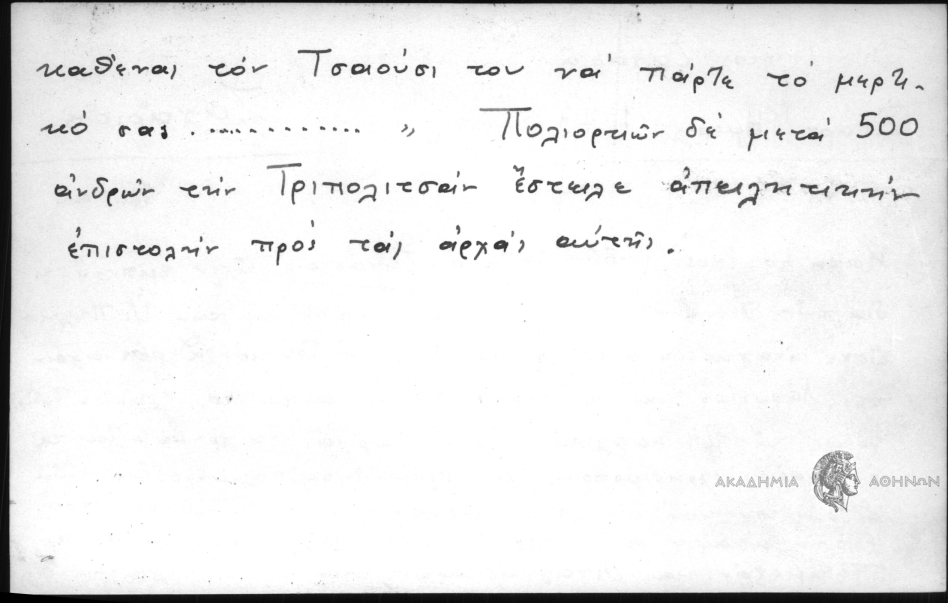 καθένας τόν Τσαούσι του νά πάρτε τό μερτι-
κό σας ............. „ Πολιορκῶν δέ μετά 500
ἀνδρῶν τήν Τριπολιτσάν ἔστειλε ἀπειλητικήν
ἐπιστολήν πρός τάς ἀρχάς αὐτῆς.
ΑΚΑΔΗΜΙΑ ΑΘΗΝΩΝ